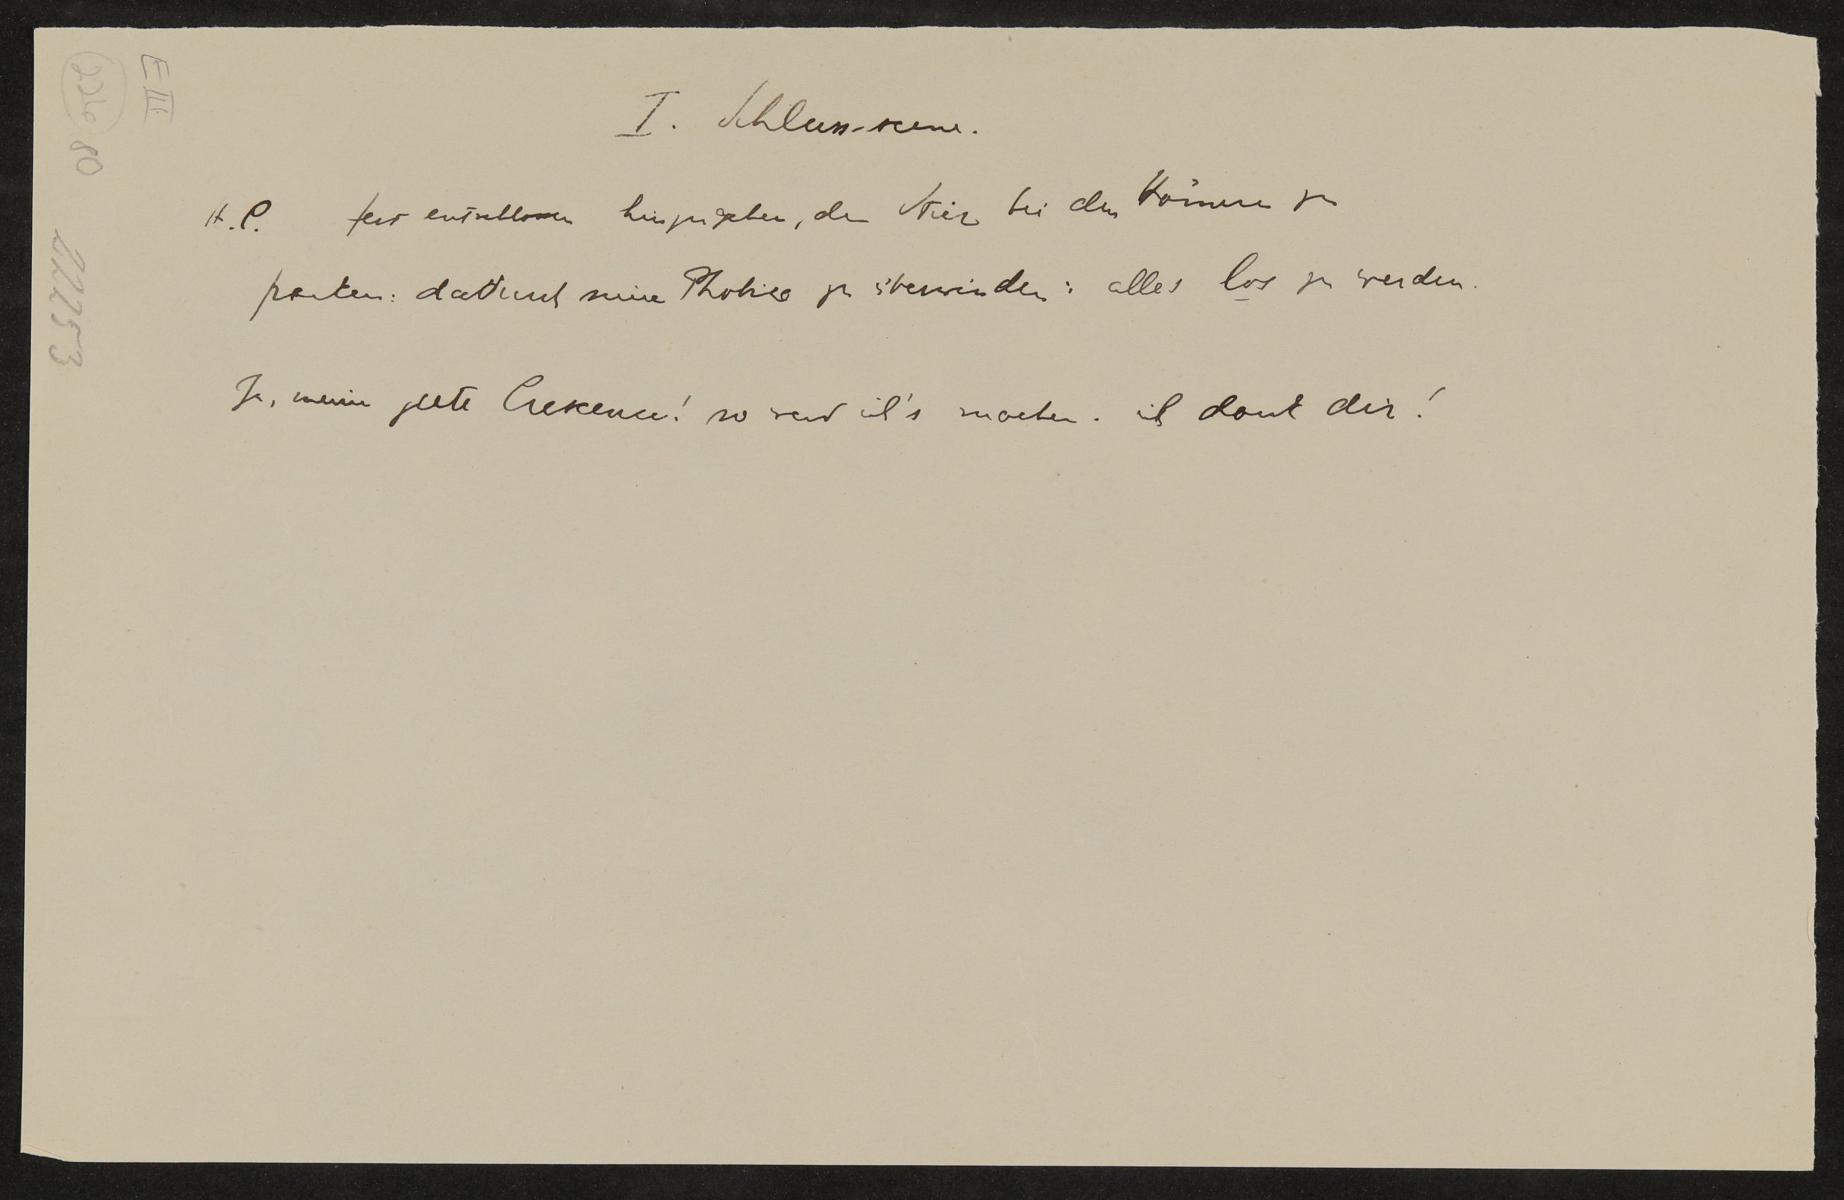 E III
226 80
22253
I. Schluss-scene.
H. C. fest entschlossen hinzugehen, den Stier bei den Hörnern zu
packen: dadurch seine Phobieo zu überwinden: alles los zu werden.
Ja, meine gute Crescence! so werd ich's machen. ich dank dir!